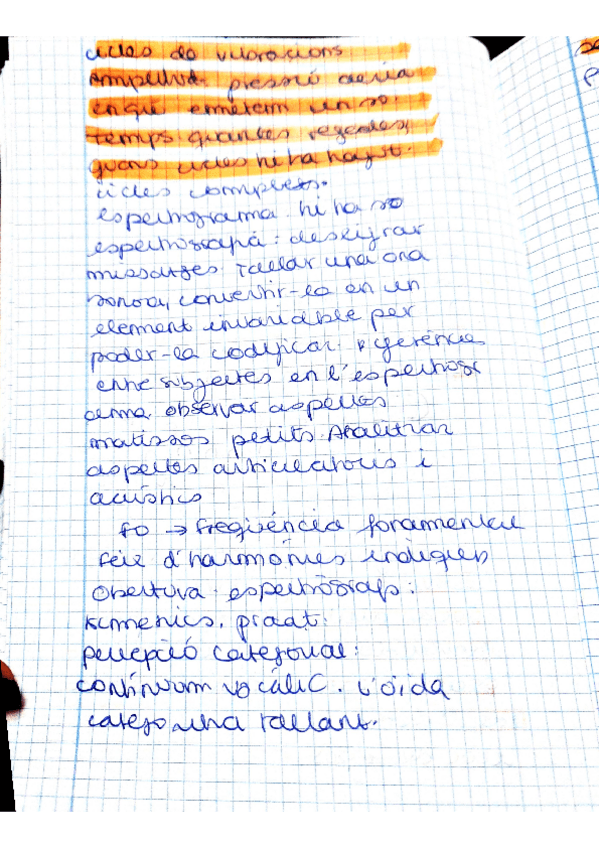 cicles de vibracions
Amplitud: pressió de l'aire
en què emetem un so.
temps quantes vegades,
quans cicles hi ha hagut.
cicles complets.
espectrograma: hi ha so
espectrografia: desxifrar
missatges. Tallar una ona
sonora, convertir-la en un
element invariable per
poder-la codificar.
entre subjectes en l'espectrogr
ama. observar aspectes
matissos petits. Analitzar
aspectes articulatoris i
acústics
F0 → freqüència fonamental
feix d'harmònics indiquen
obertura. espectrògrafs:
praat:
percepció categorial:
contínuum vocàlic. L'oïda
tallant.